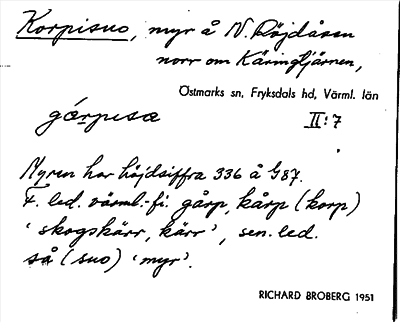 Korpisuo, myr å N. Röjdåsen
norr om Käringtjärnen,
Östmarks sn, Fryksdals hd, Värml. län
gårpisœ II:7
Myren har höjdsiffra 336 å G87.
F. led. värml.-fi. gårp, kårp (korp)
'skogskärr, kärr', sen. led.
så (suo) 'myr'.
RICHARD BROBERG 1951